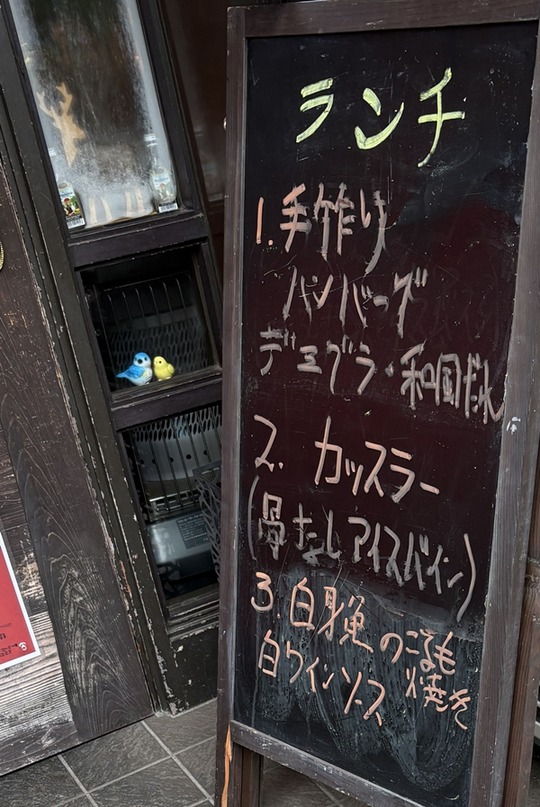 ランチ
1. 手作り
ハンバーグ
デミグラ・和風だれ
2. カッスラー
(骨なしアイスバイン)
3. 白身魚のころも焼き
白ワインソース